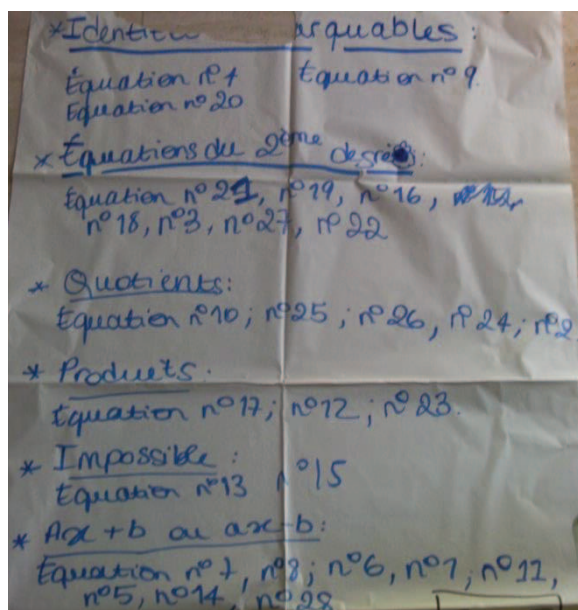 *Identit arquables:
Équation n°1 Équation n°9.
Équation n°20
* Équations du 2ème degré:
Équation n°21, n°19, n°16,
n°18, n°3, n°27, n°22
* Quotients:
Équation n°10; n°25; n°26, n°24; n°2
* Produits:
Équation n°17; n°12; n°23.
* Impossible:
Équation n°13 n°15
* Ax+b ou ax-b:
Équation n°7, n°8; n°6, n°1; n°11,
n°5, n°14, n°28